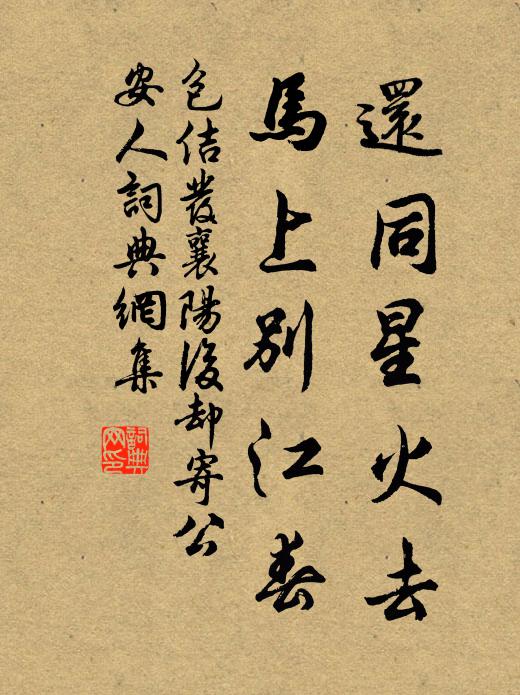 還同星火去
馬上別江春
包佶發襄陽後却寄公
安人詞典網集
詞典網印